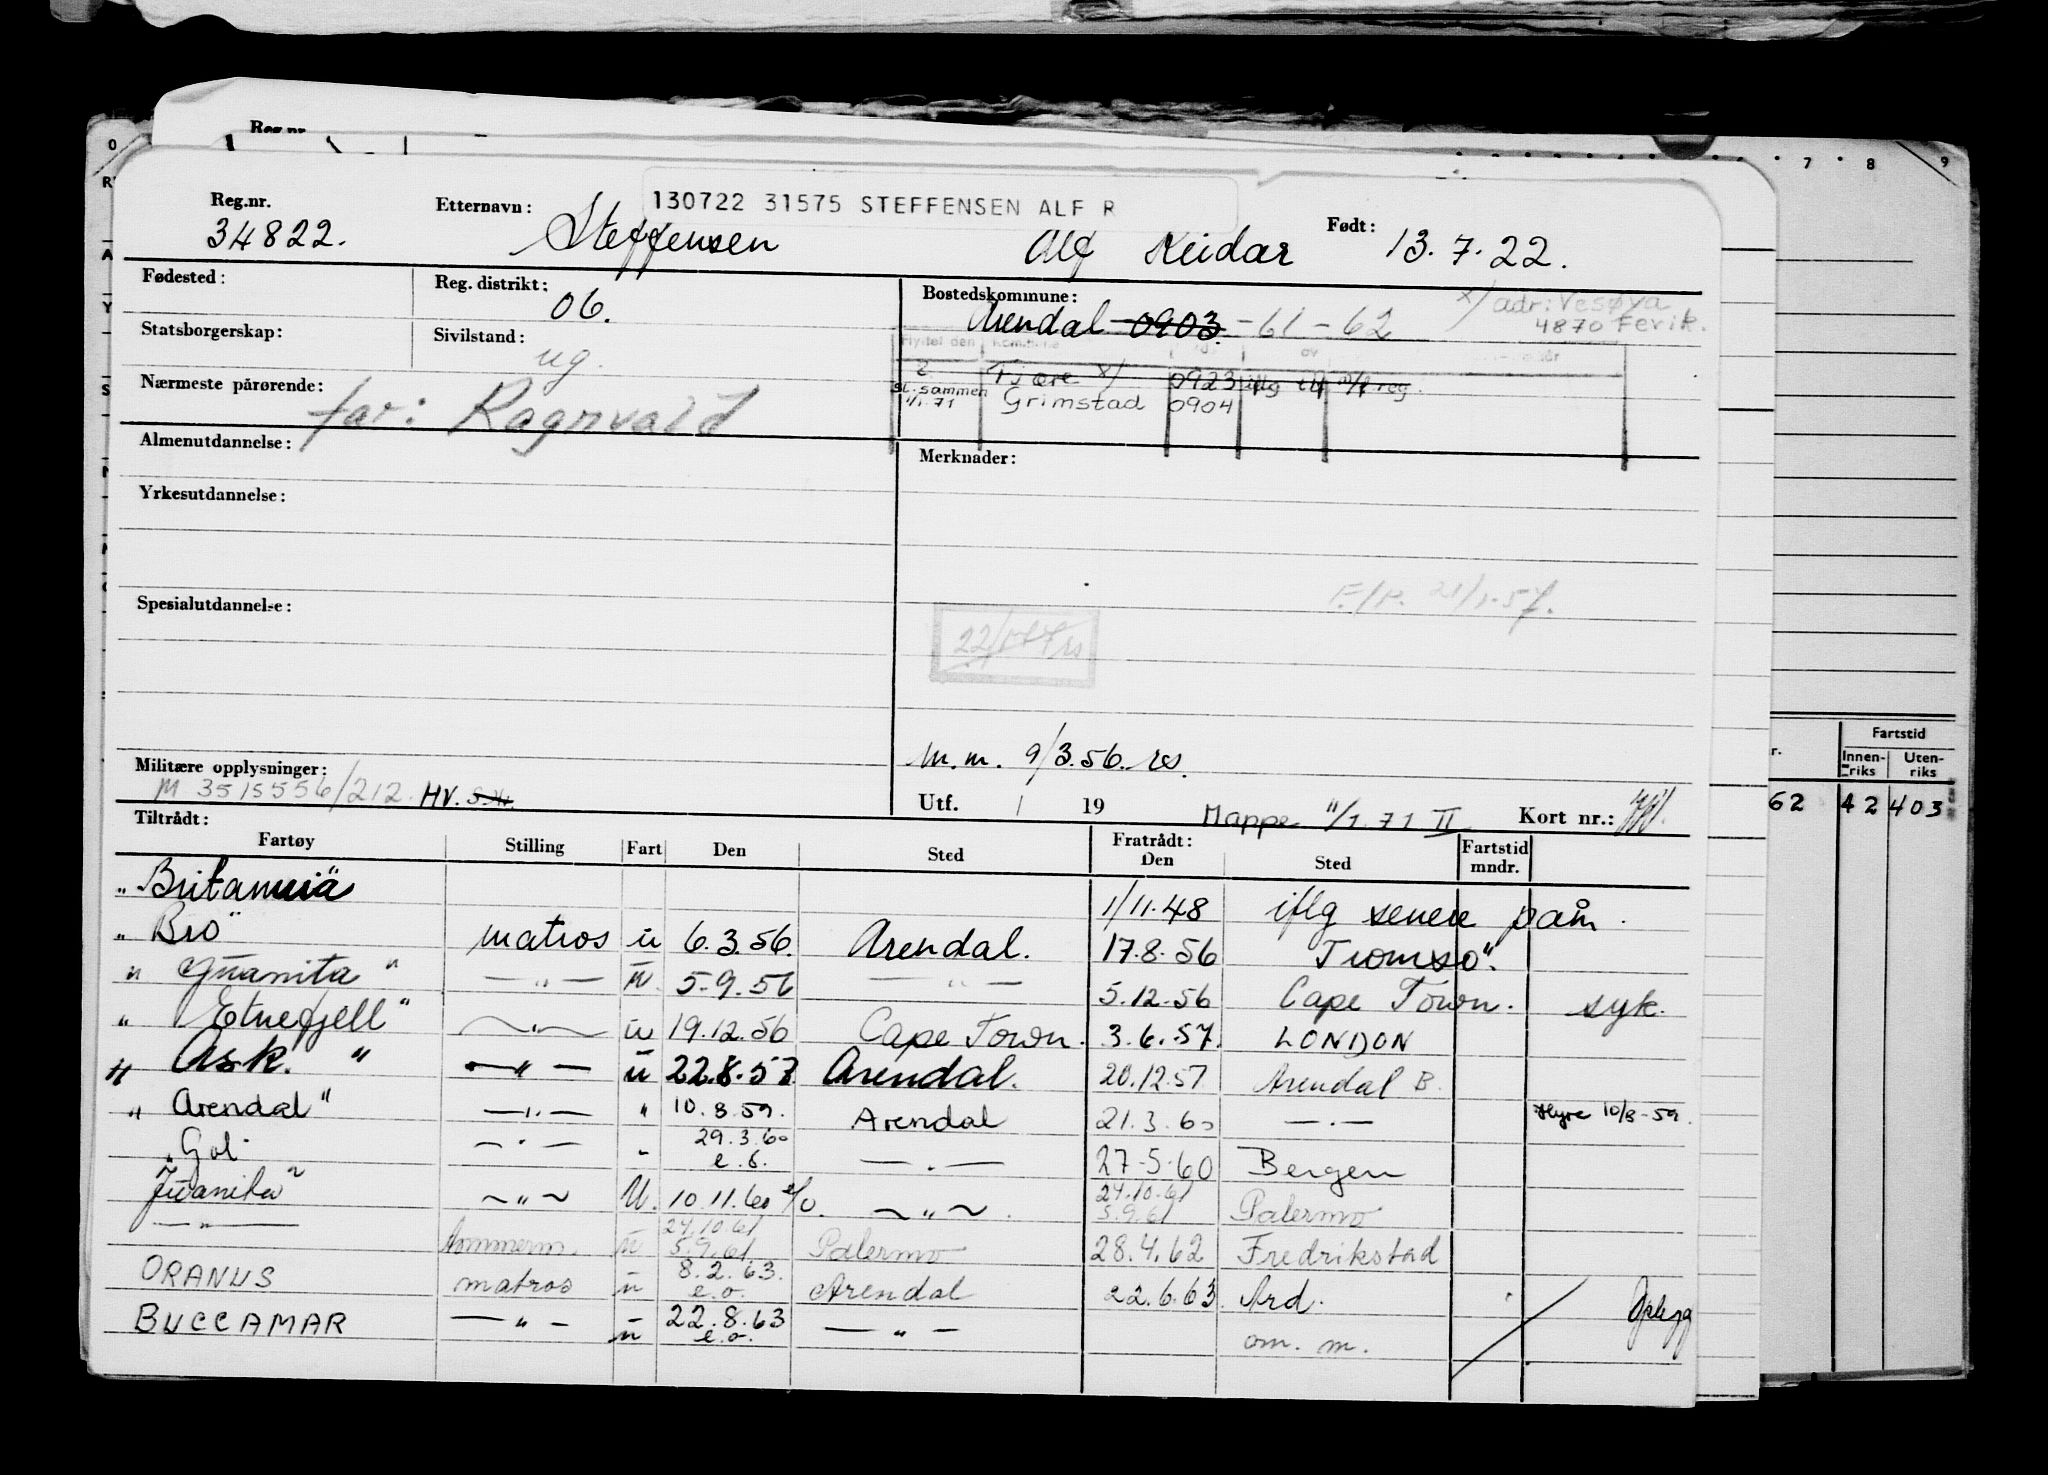 0 7 8 9
Reg.nr.
130722 31575 STEFFENSEN ALF R
Reg.nr. Etternavn: Født:
34822. Steffensen Alf Reidar 13.7.22.
Fødested: Reg. distrikt: 06. Bostedskommune: Arendal 0903 - 61 - 62 x/ adr: Vesøya
4870 Fevik.
Statsborgerskap: Sivilstand: ug. Flyttet den
Nærmeste pårørende: far: Ragnvald Tjøre x/ 0923 iflg
sl. sammen 1/1.71 Grimstad 0904
Almenutdannelse: Merknader:
Yrkesutdannelse:
F./R. 21/1.57.
Spesialutdannelse:
M.m. 9/3.56.
Militære opplysninger: M 3515556/212. HV.
Utf. / 19 Mappe 11/1.71 II Kort nr.:
Tiltrådt: Fratrådt:
Fartøy Stilling Fart Den Sted Den Sted Fartstid mndr.
"Britannia" 1/11.48 iflg senere påm.
"Bro" matros u 6.3.56. Arendal. 17.8.56 Tromsø".
"Juanita" — " — u. 5.9.56 — " — 5.12.56 Cape Town. syk.
"Etnefjell" — " — u 19.12.56 Cape Town. 3.6.57. LONDON
"Ask." — " — u 22.8.57 Arendal. 20.12.57 Arendal B.
"Arendal" — " — " 10.8.59. Arendal 21.3.60 — " — Hyre 10/8-59.
"Gol" — " — " 29.3.60 e.o. — " — 27-5-60 Bergen
Juanita" — " — U. 10.11.60 e/o. — " — . 24.10.61 5.9.61 Palermo
— " — tømmerm. u 24.10.61 5.9.61 Palermo 28.4.62 Fredrikstad
ORANUS matros u 8.2.63. e.o. Arendal 22.6.63 Ard.
BUCCAMAR — " — u 22.8.63 e.o. — " — om. m.
Fartstid
Innenriks Utenriks
62 42 403